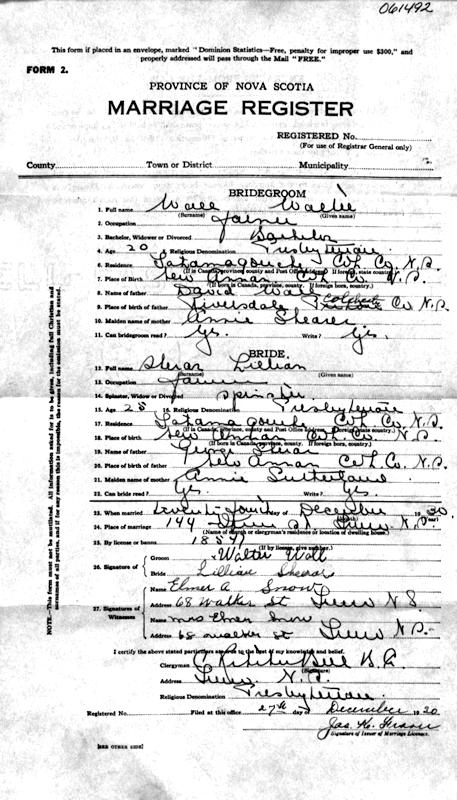 061492
This form if placed in an envelope, marked "Dominion Statistics—Free, penalty for improper use $300," and
properly addressed will pass through the Mail "FREE."
FORM 2.
PROVINCE OF NOVA SCOTIA
MARRIAGE REGISTER
REGISTERED No.
(For use of Registrar General only)
County Town or District Municipality
BRIDEGROOM
1. Full name Wall
(Surname) (Given name)
2. Occupation Farmer
3. Bachelor, Widower or Divorced Bachelor
4. Age 20 5. Religious Denomination Presbyterian
6. Residence Tatamagouche Col. Co. N.S.
(If in Canada, province, county and Post Office. If foreign, state country)
7. Place of Birth New Annan Col. Co. N.S.
(If born in Canada, province, county. If foreign born, country.)
8. Name of father David Wall
9. Place of birth of father Riversdale Colchester Co N.S.
10. Maiden name of mother Annie Shearer
11. Can bridegroom read? Yes. Write? Yes.
BRIDE.
12. Full name Shear Lillian
(Surname) (Given name)
13. Occupation
14. Spinster, Widow or Divorced Spinster
15. Age 25 16. Religious Denomination Presbyterian
17. Residence Tatamagouche Col. Co. N.S.
(If in Canada, province, county and Post Office address. If foreign, state country)
18. Place of birth New Annan Col. Co. N.S.
(If born in Canada, province, county. If foreign born, country.)
19. Name of father George Shear
20. Place of birth of father New Annan Col. Co. N.S.
21. Maiden name of mother Annie Sutherland
22. Can bride read? Yes. Write? Yes.
23. When married Twenty fourth day of December 1920
(Year)
24. Place of marriage 144 St Truro N.S.
(Name of church or clergyman's residence or location of dwelling house.)
25. By license or banns 18547
(If by license, give number.)
26. Signature of Groom Walter Wall
Bride Lillian Shear
27. Signatures of Witnesses
Name Elmer A Snow
Address 68 Walker St Truro N S
Name Mrs Elmer Snow
Address 68 Walker St Truro N.S.
I certify the above stated particulars are true to the best of my knowledge and belief.
(Signature)
Clergyman B.A.
Address Truro N.S.
Religious Denomination Presbyterian
Registered No. Filed at this office 27th day of December 1920
Jas. K. Fraser
Signature of Issuer of Marriage Licenses.
[SEE OTHER SIDE]
NOTE.—This form must not be mutilated. All information asked for is to be given, including full Christian and
surnames of all parties, and if for any reason this is impossible, the reason for the omission must be stated.